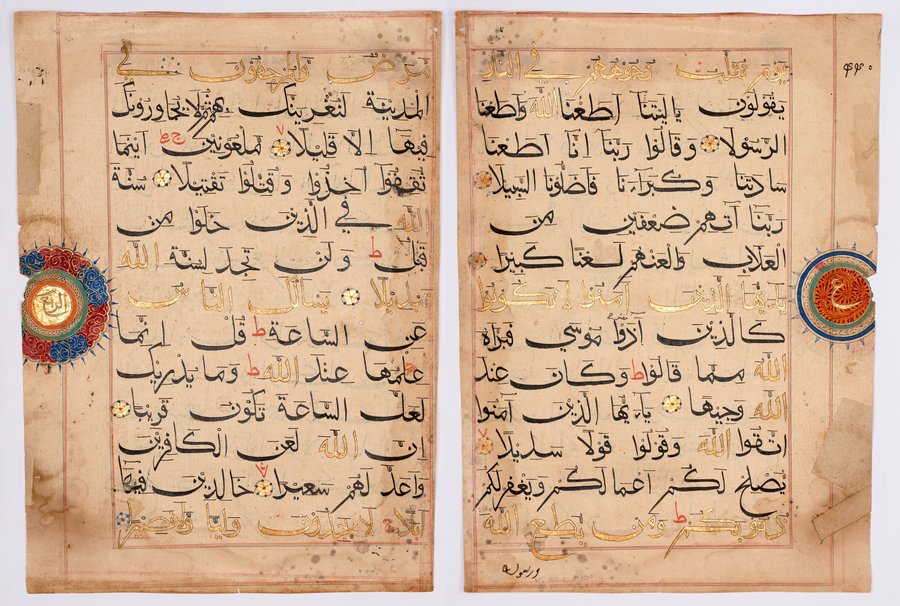 مرض والمرجفون في
المدينة لنغرينك بهم ثم لا يجاورونك
فيها الا قليلا ملعونين اينما
ثقفوا اخذوا وقتلوا تقتيلا سنة
الله في الذين خلوا من
قبل ط ولن تجد لسنة الله
تبديلا يسئلك الناس
عن الساعة ط قل انما
علمها عند الله ط وما يدريك
لعل الساعة تكون قريبا
ان الله لعن الكافرين
واعد لهم سعيرا خالدين فيها
ابدا ج لا يجدون وليا ولا نصيرا
الربع
يوم تقلب وجوههم في النار
يقولون ياليتنا اطعنا الله واطعنا
الرسولا وقالوا ربنا انا اطعنا
سادتنا وكبراءنا فاضلونا السبيلا
ربنا آتهم ضعفين من
العذاب والعنهم لعنا كبيرا
يايها الذين آمنوا لا تكونوا
كالذين آذوا موسي فبراه
الله مما قالوا ط وكان عند
الله وجيها يايها الذين آمنوا
اتقوا الله وقولوا قولا سديدا لا
يصلح لكم اعمالكم ويغفر لكم
ذنوبكم ط ومن يطع الله
ورسوله
ع